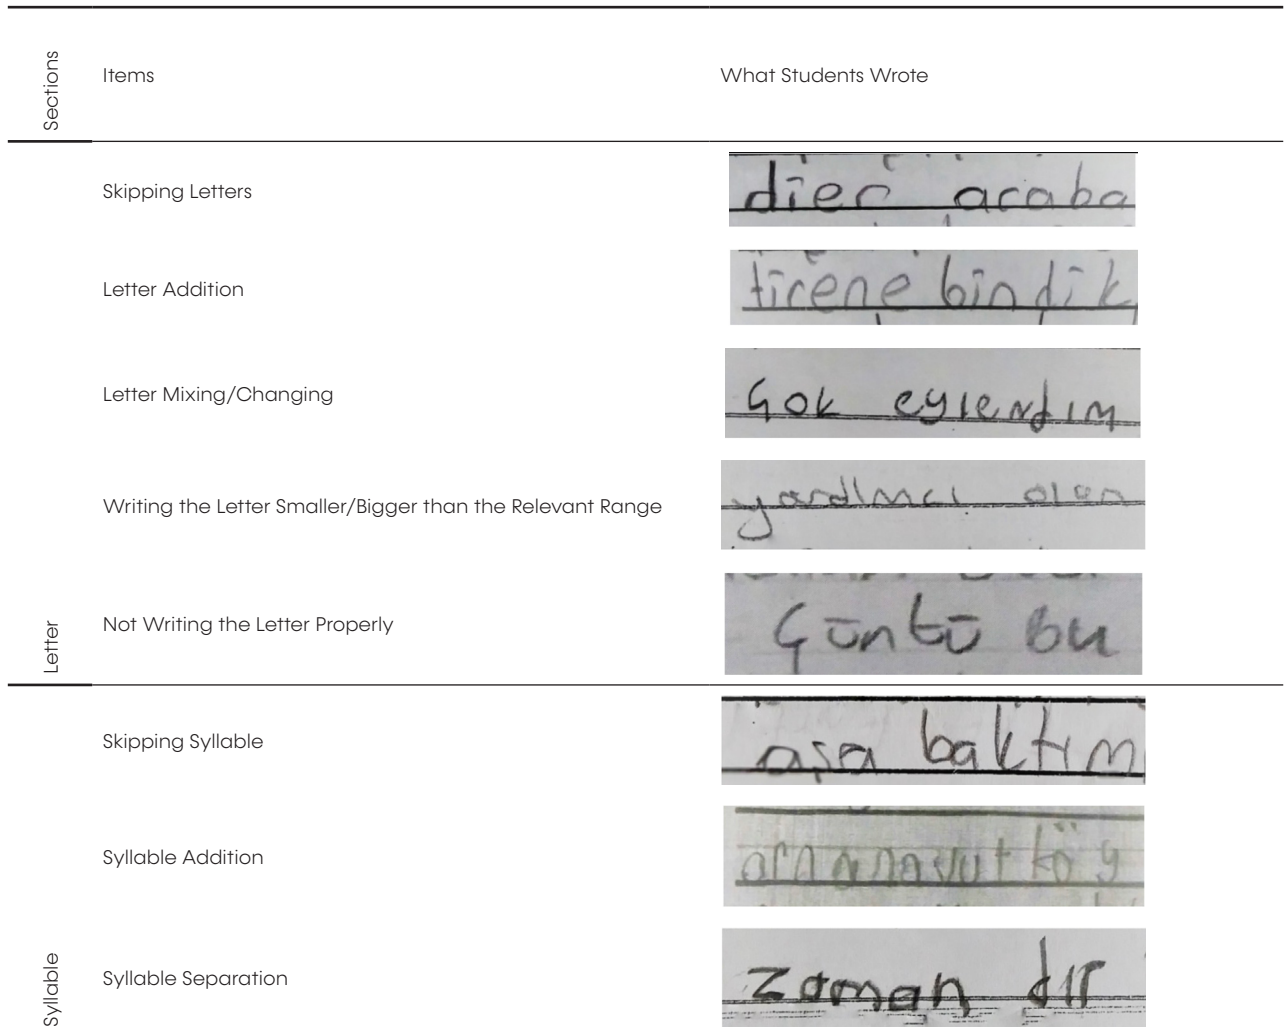 Sections Items What Students Wrote
Skipping Letters dier araba
Letter Addition tirene bindik
Letter Mixing/Changing Çok eylendim
Writing the Letter Smaller/Bigger than the Relevant Range yardımcı olan
Letter Not Writing the Letter Properly Çünkü bu
Skipping Syllable aşa baktım
Syllable Addition arnanavut köy
Syllable Syllable Separation zaman dır